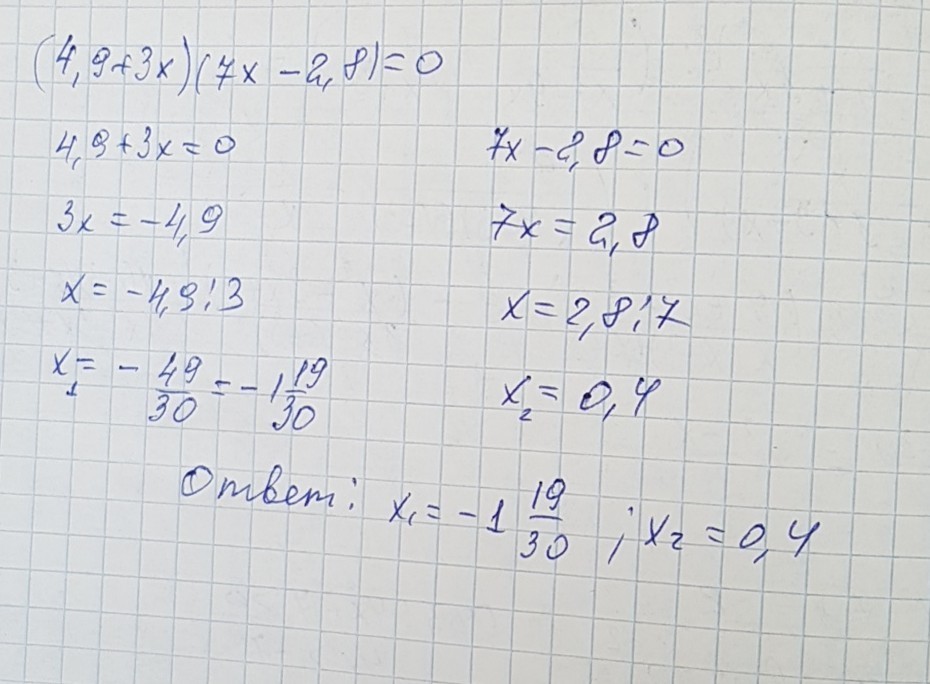 (4,9+3x)(7x-2,8)=0
4,9+3x=0 7x-2,8=0
3x=-4,9 7x=2,8
x=-4,9:3 x=2,8:7
x₁=-49/30=-1 19/30 x₂=0,4
Ответ: x₁=-1 19/30; x₂=0,4